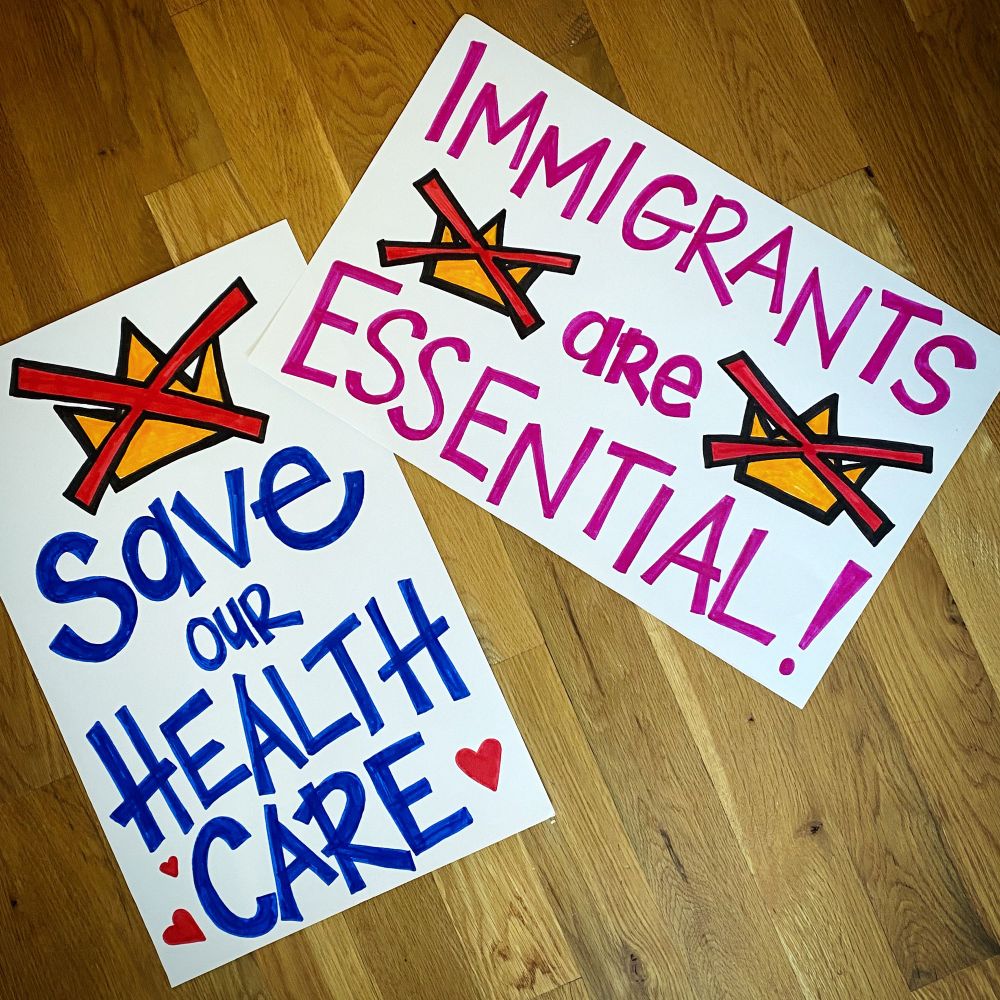 Save
OUR
HEALTH
CARE
IMMIGRANTS
are
ESSENTIAL!